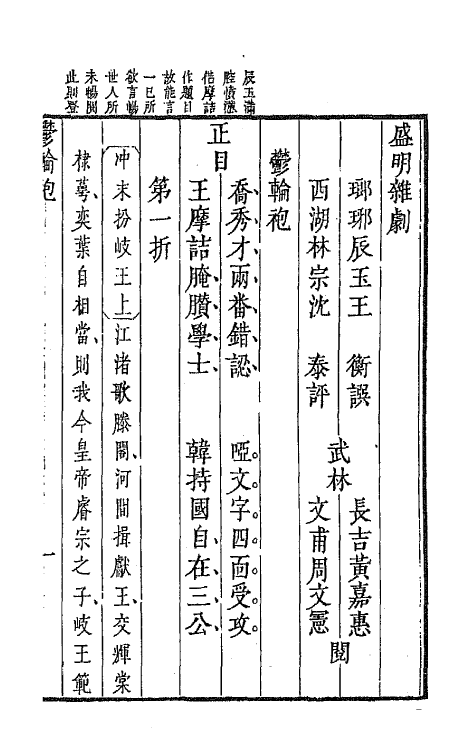 辰玉滿
腔憤懣
借摩詰
作題目
故能言
一己所
欲言暢
世人所
未暢閱
此則登
盛明雜劇
瑯琊辰玉王 衡譔
西湖林宗沈 泰評
武林
長吉黃嘉惠
文甫周文憲
閱
鬱輪袍
正目
喬秀才兩番錯認 啞文字四面受攻
王摩詰腌臢學士 韓持國自在三公
第一折
沖末扮岐王上江渚歌滕閣河間揖獻王交輝棠
棣萼奕葉自相當則我今皇帝睿宗之子岐王範
鬱輪袍
一